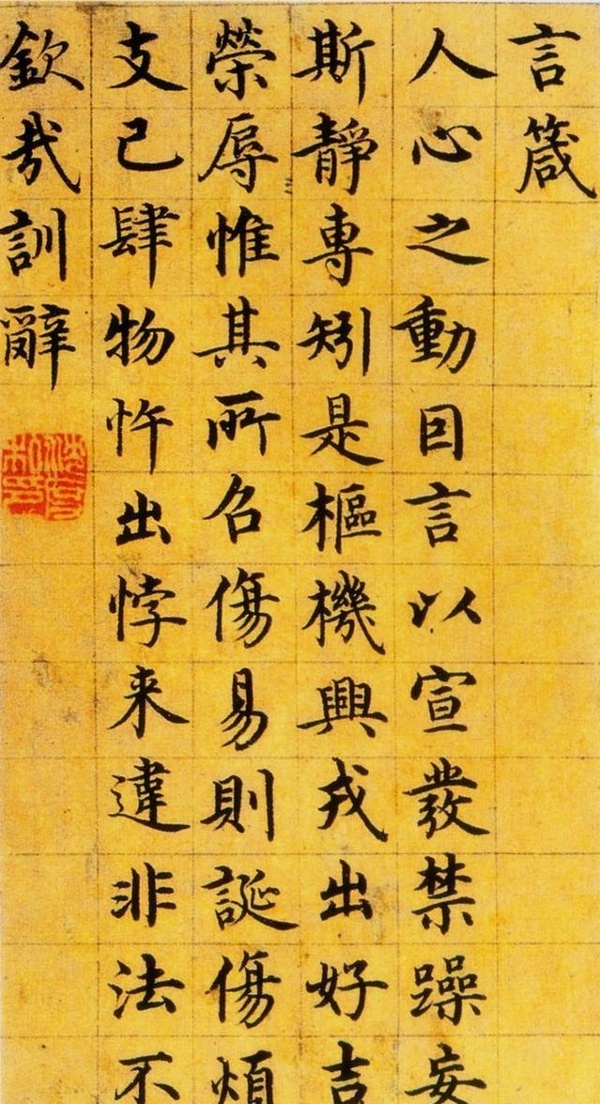 言箴
人心之動囙言以宣發禁躁妄
斯靜專矧是樞機興戎出好吉
榮辱惟其所召傷易則誕傷煩
支己肆物忤出悖来違非法不
欽哉訓辭